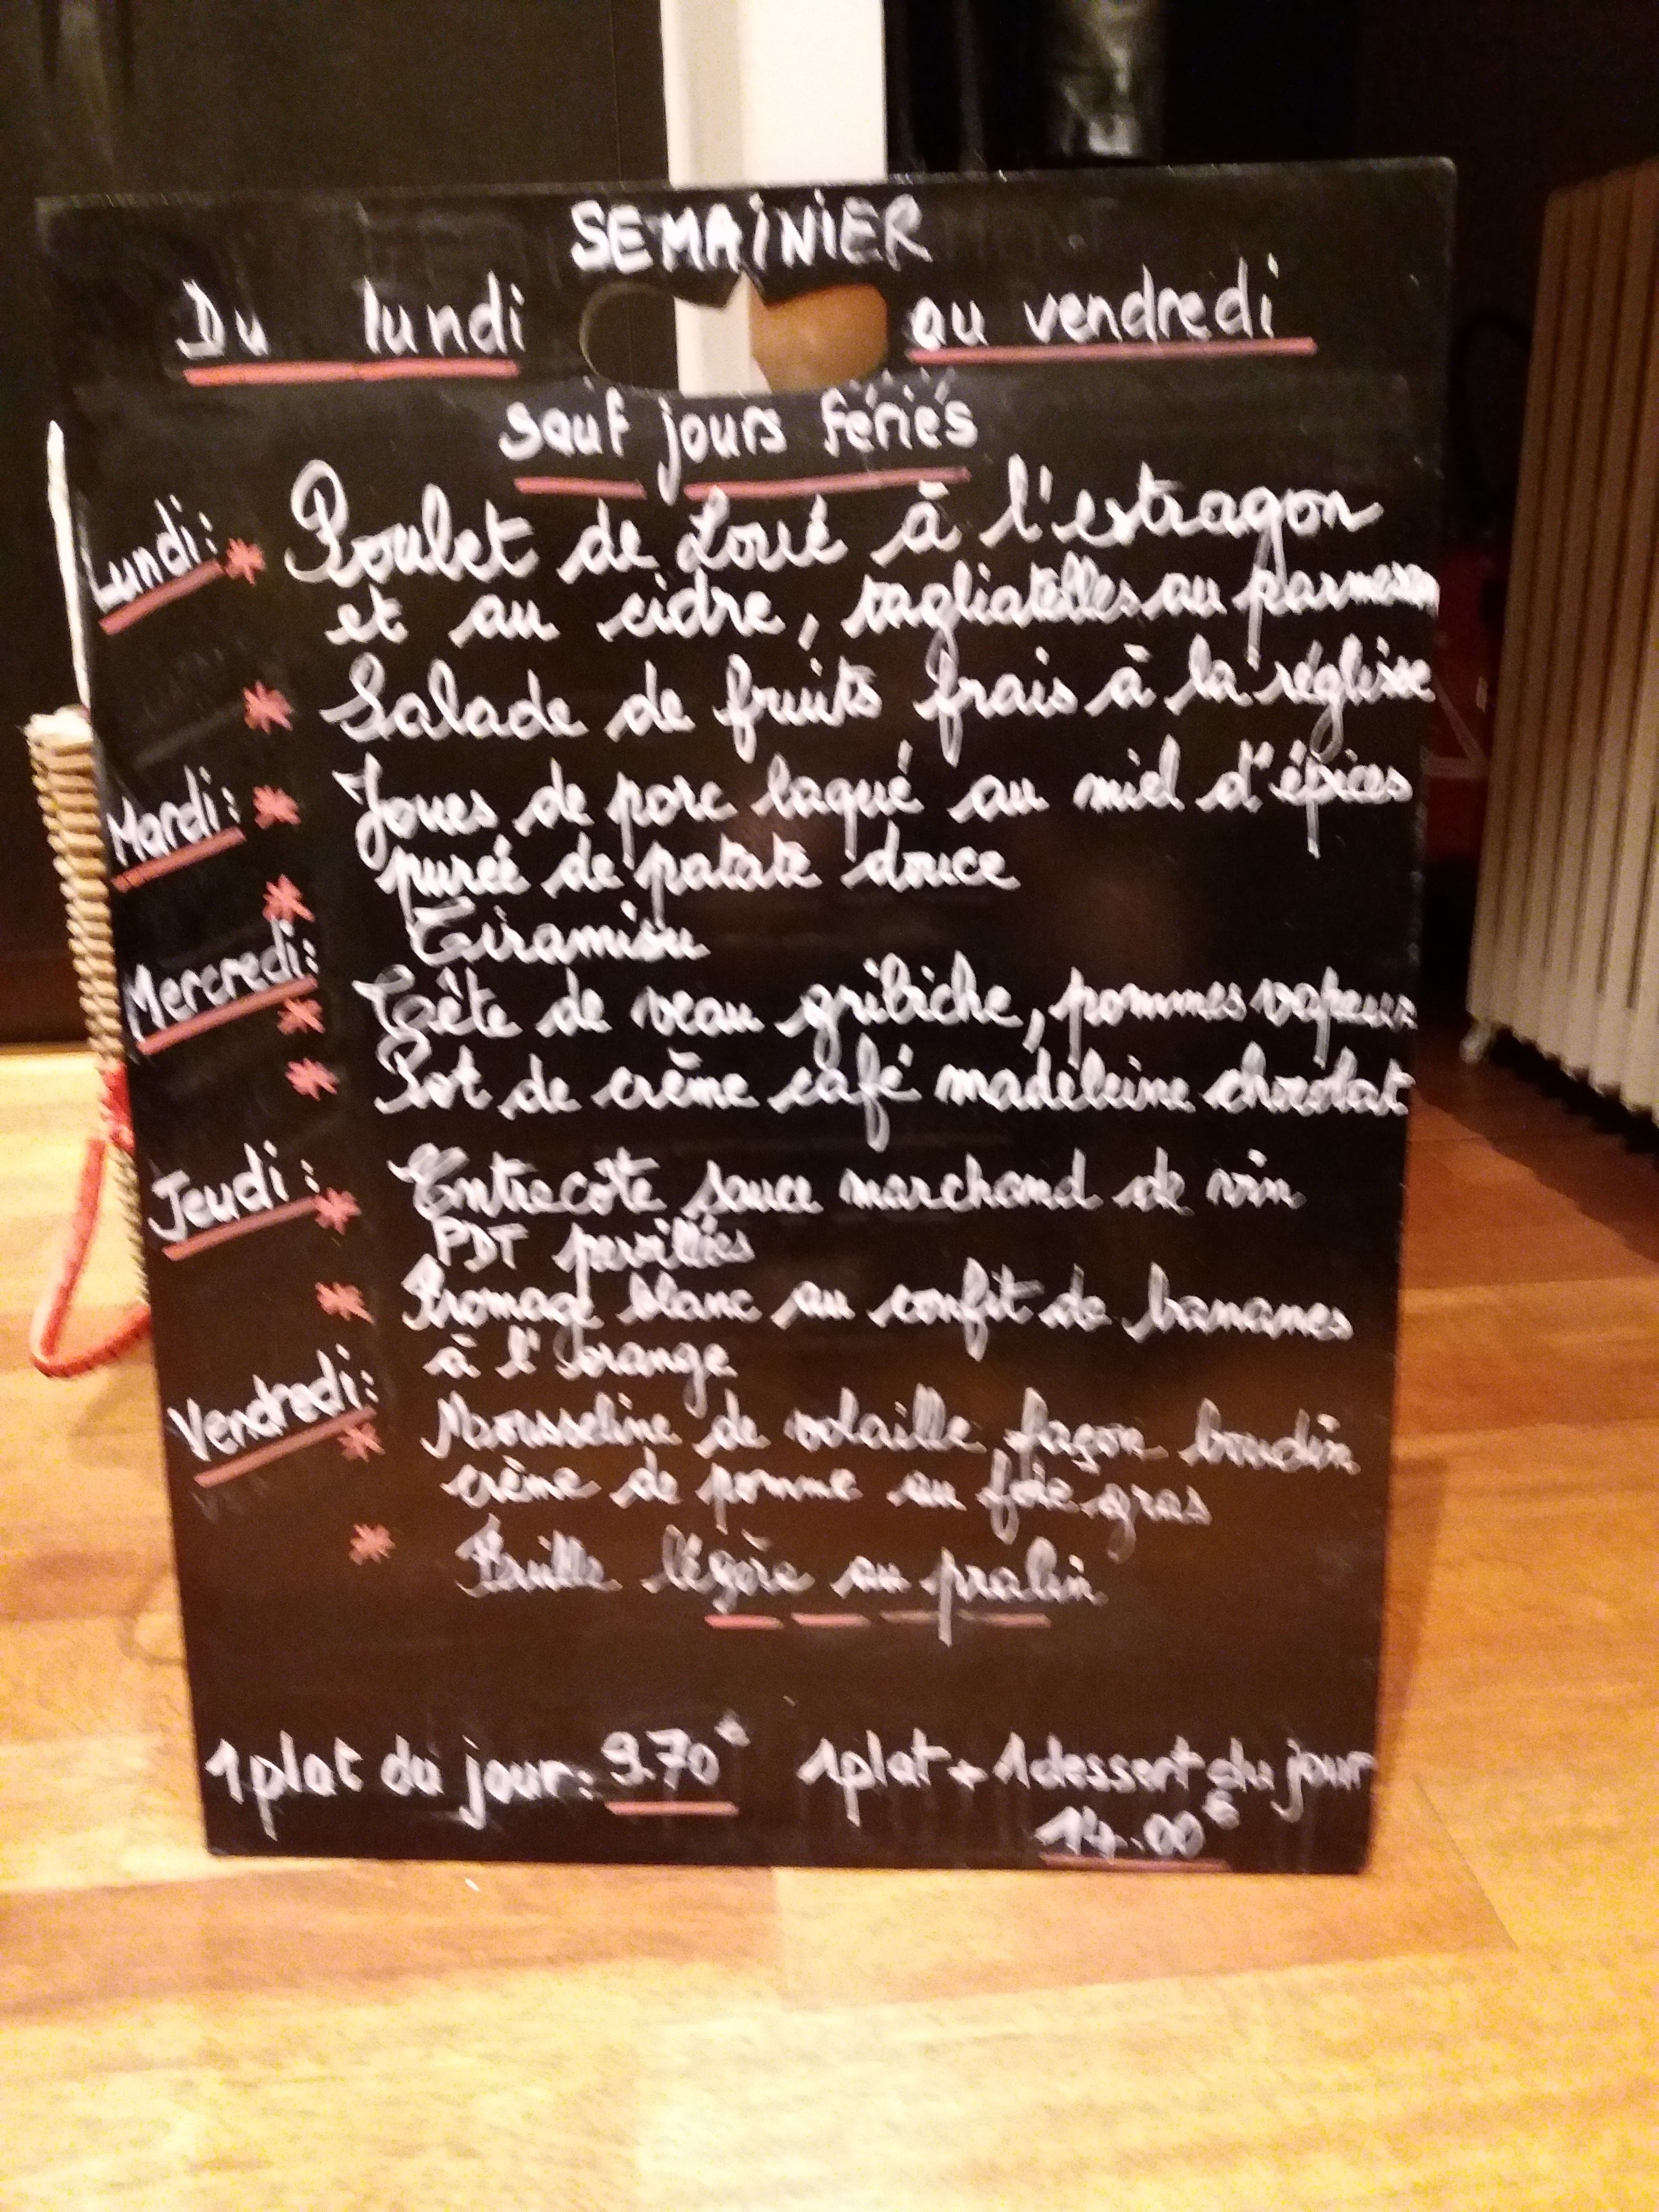 SEMAiNiER
Du lundi au vendredi
sauf jours fériés
Lundi: * Poulet de Loué à l'estragon
et au cidre, tagliatelles au parmesan
* Salade de fruits frais à la réglisse
Mardi: * Joues de porc laqué au miel d'épices
purée de patate douce
* Tiramisu
Mercredi: * Tête de veau gribiche, pommes vapeur
* Pot de crème café madeleine chocolat
Jeudi: * Entrecôte sauce marchand de vin
PDT persillées
* Fromage blanc au confit de bananes
à l'orange
Vendredi: * Mousseline de volaille façon boudin
crème de pomme au foie gras
* Feuille légère au pralin
1 plat du jour: 9.70€ 1 plat + 1 dessert du jour
14.00€